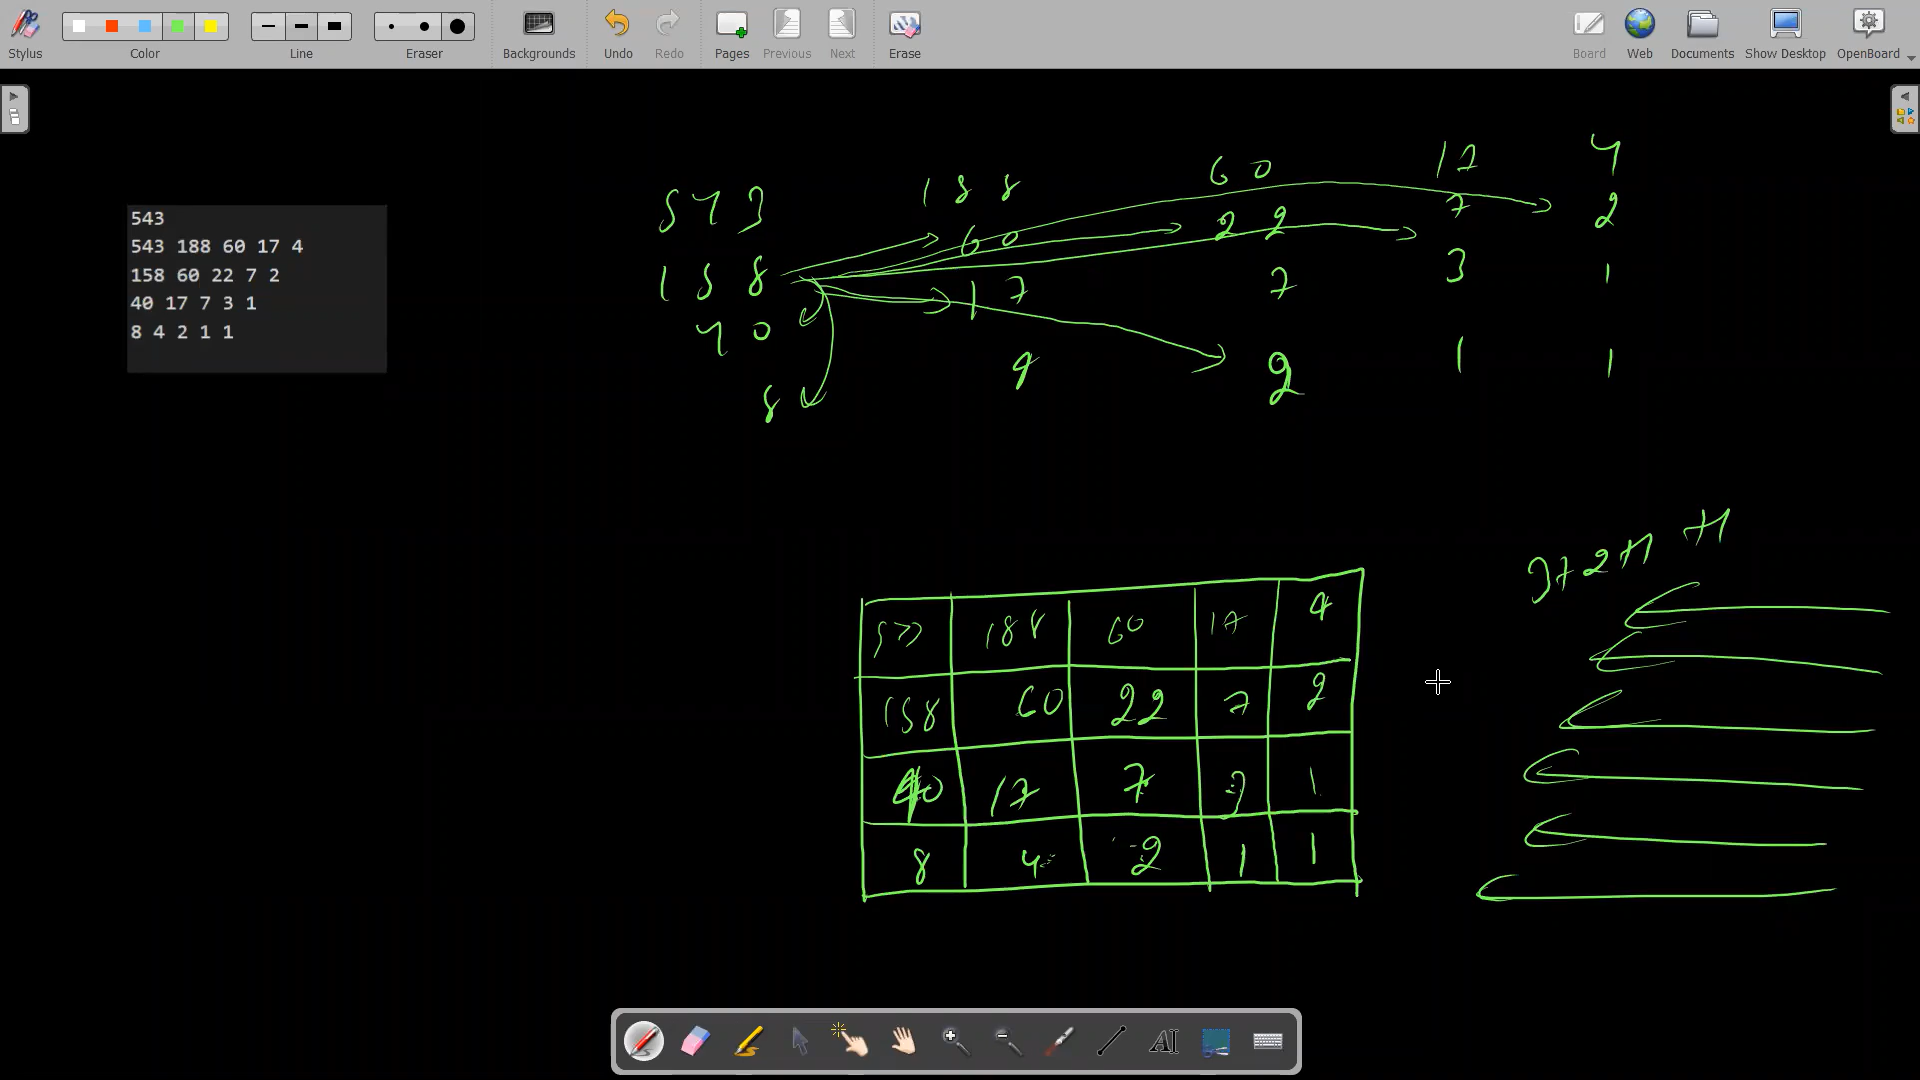 Stylus Color Line Eraser Backgrounds Undo Redo Pages Previous Next Erase Board Web Documents Show Desktop OpenBoard
543
543 188 60 17 4
158 60 22 7 2
40 17 7 3 1
8 4 2 1 1
543 188 60 17 4
158 60 22 7 2
40 17 7 3 1
8 4 2 1 1
3+2+1 +1
188 60 17 4
158 60 22 7 2
40 17 7 3 1
8 4 2 1 1